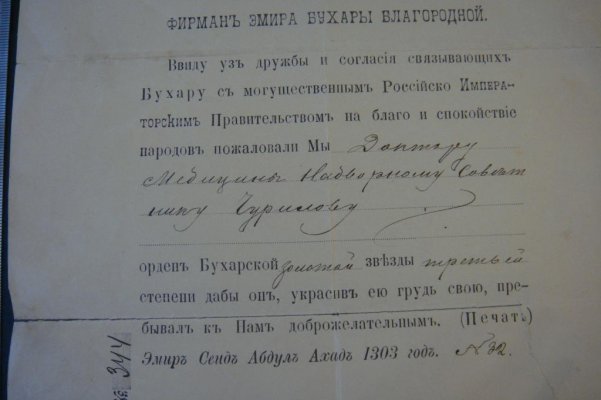 ФИРМАНЪ ЭМИРА БУХАРЫ БЛАГОРОДНОЙ.
Ввиду узъ дружбы и согласія связывающихъ
Бухару съ могущественнымъ Россійско Импера-
торскимъ Правительствомъ на благо и спокойствіе
народовъ пожаловали Мы Доктору
Медицины Надворному Совѣт
нику Чурилову
орденъ Бухарской золотой звѣзды третьей
степени дабы онъ, украсивъ ею грудь свою, пре-
бывалъ къ Намъ доброжелательнымъ. (Печать)
Эмиръ Сеидъ Абдулъ Ахадъ 1303 годъ. №32.
344